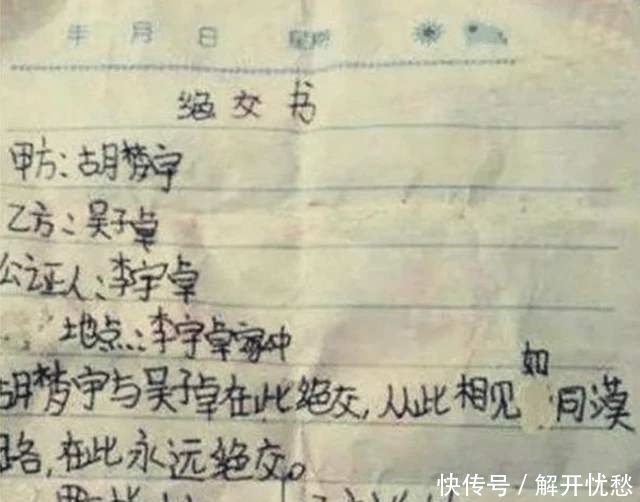 年 月 日 星期
绝交书
甲方:胡梦宇
乙方:吴子卓
公证人:李宇卓
地点:李宇卓家中
胡梦宇与吴子卓在此绝交,从此相见如同漠
路,在此永远绝交。
快传号/解开忧愁